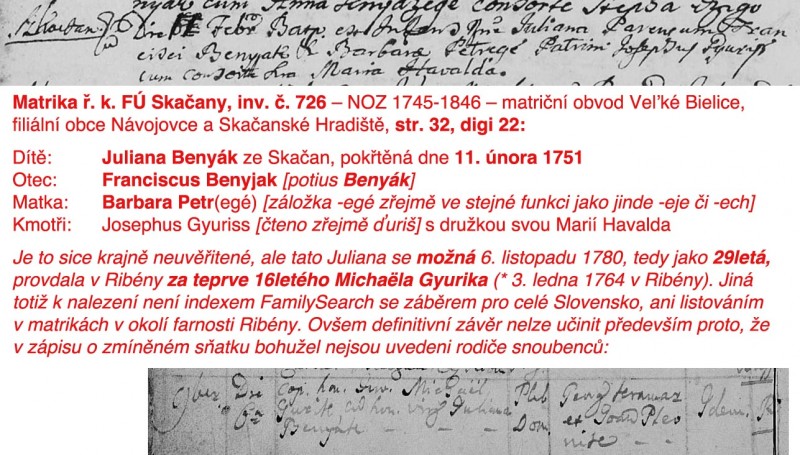 nyak cum Anna consorte
Die Febr Bap. est Infans Nre Juliana Parentum Fran
cisci Benyak & Barbara Petregé Patrini Josephus Gyuriss
cum consorte sua Maria Havalda.
Matrika ř. k. FÚ Skačany, inv. č. 726 – NOZ 1745-1846 – matriční obvod Veľké Bielice,
filiální obce Návojovce a Skačanské Hradiště, str. 32, digi 22:
Dítě: Juliana Benyák ze Skačan, pokřtěná dne 11. února 1751
Otec: Franciscus Benyjak [potius Benyák]
Matka: Barbara Petr(egé) [záložka -egé zřejmě ve stejné funkci jako jinde -eje či -ech]
Kmotři: Josephus Gyuriss [čteno zřejmě ďuriš] s družkou svou Marií Havalda
Je to sice krajně neuvěřitené, ale tato Juliana se možná 6. listopadu 1780, tedy jako 29letá,
provdala v Ribény za teprve 16letého Michaëla Gyurika (* 3. ledna 1764 v Ribény). Jiná
totiž k nalezení není indexem FamilySearch se záběrem pro celé Slovensko, ani listováním
v matrikách v okolí farnosti Ribény. Ovšem definitivní závěr nelze učinit především proto, že
v zápisu o zmíněném sňatku bohužel nejsou uvedeni rodiče snoubenců:
Cop. hon. Juv. Michaël
cum hon. Virg. Juliana
Benyák
Idem.